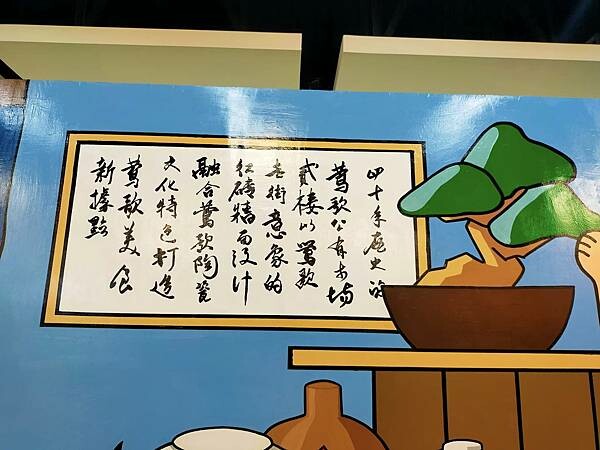 四十年歷史的
鶯歌公有市場
貳樓以鶯歌
老街意象的
紅磚牆面設計
融合鶯歌陶瓷
文化特色打造
鶯歌美食
新據點